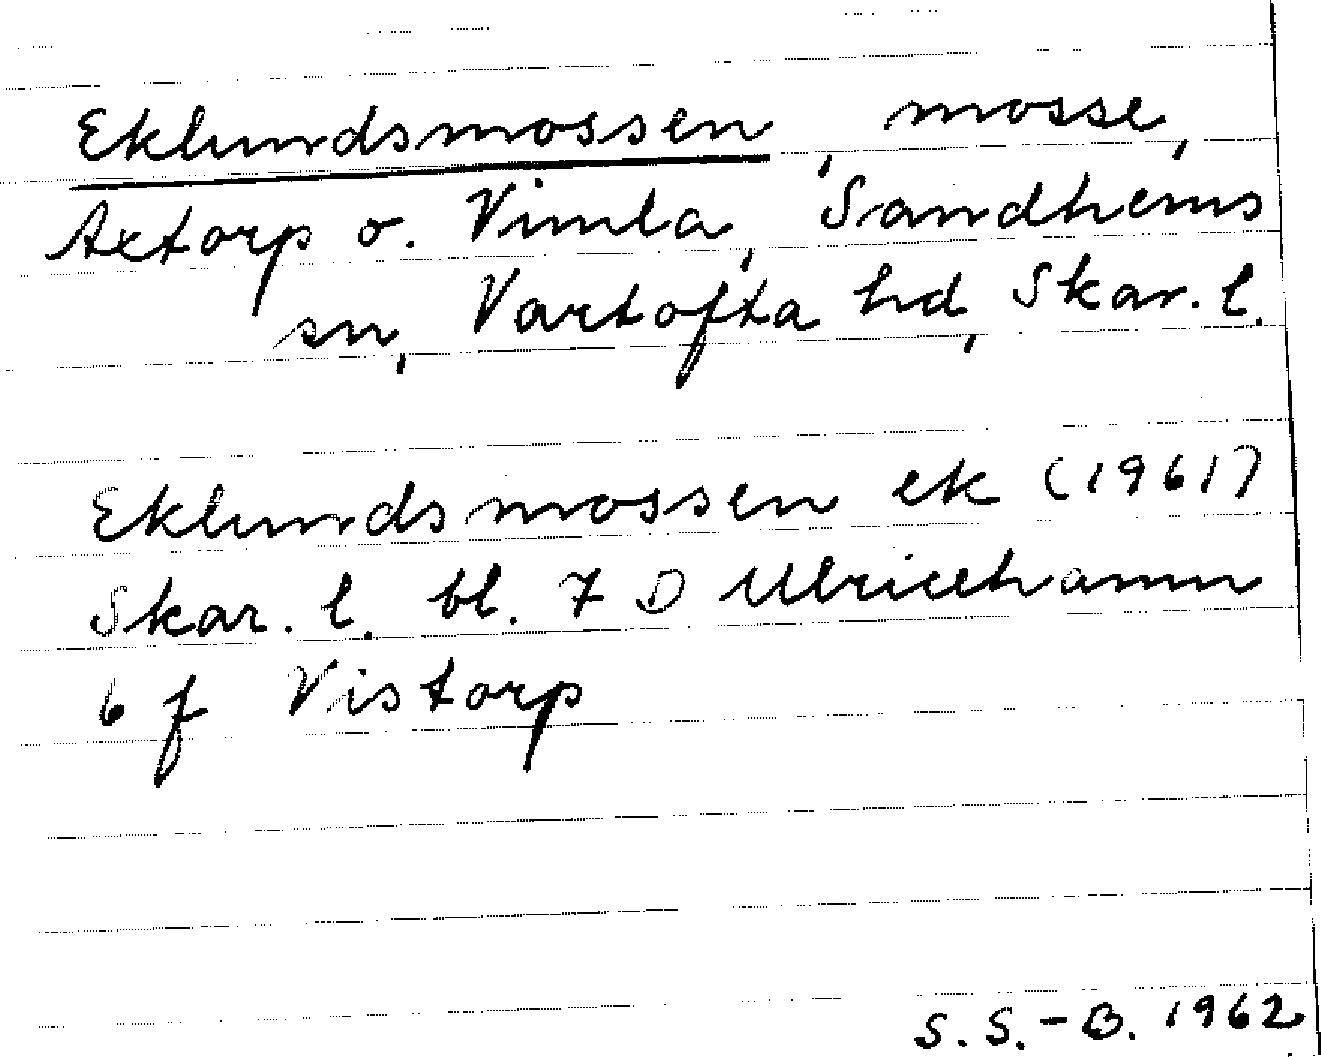 Eklundsmossen, mosse,
Axtorp o. Vimla, Sandhems
sn, Vartofta hd, Skar. l.
Eklundsmossen ek (1961)
Skar. l. bl. 7 D Ulricehamn
6 f Vistorp
S. S.-B. 1962